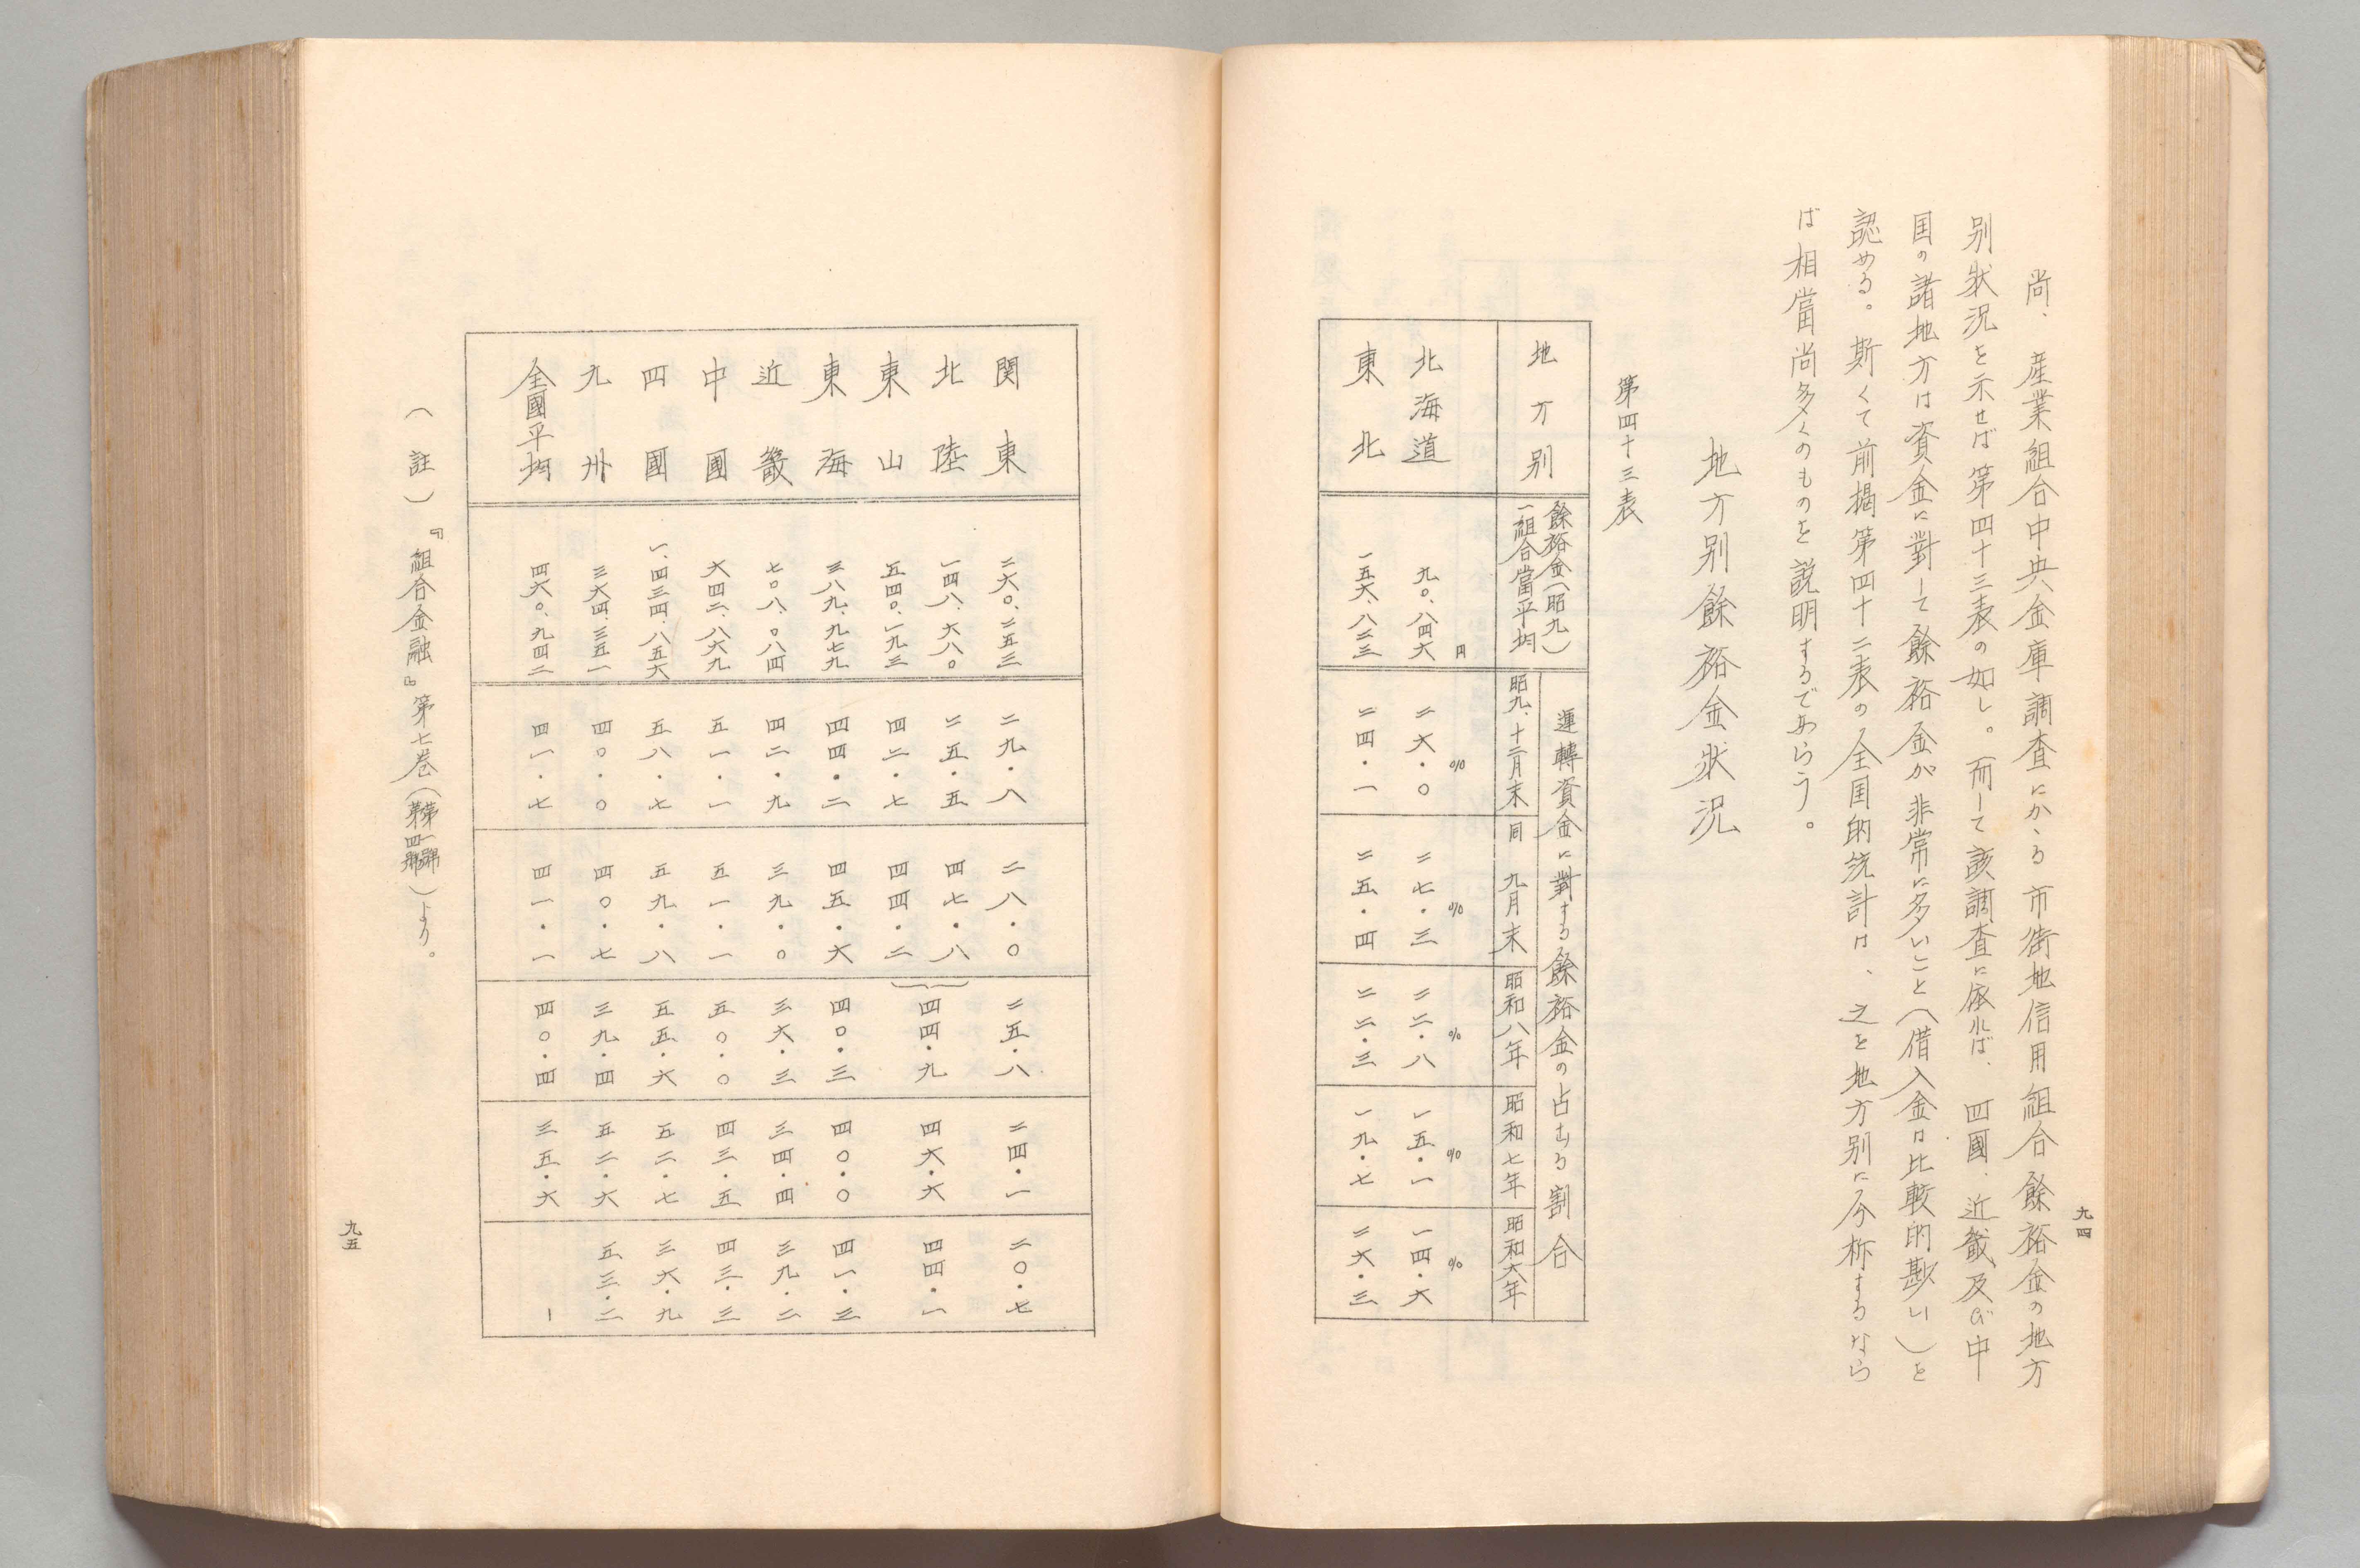 九四
尚、産業組合中央金庫調査にかゝる市街地信用組合餘裕金の地方
別状況を示せば第四十三表の如し。而して該調査に依れば、四國、近畿及び中
国の諸地方は資金に對して餘裕金が非常に多いこと（借入金は比較的尠い）を
認める。斯くて前掲第四十二表の全国的統計は、之を地方別に分析するなら
ば相當尚多くのものを説明するであらう。
地方別餘裕金状況
第四十三表
地方別 餘裕金（昭九）一組合當平均 運轉資金に對する餘裕金の占むる割合
昭九、十二月末 同 九月末 昭和八年 昭和七年 昭和六年
北海道 九〇、八四六円 二六・〇% 二七・三% 二二・八% 一五・一% 一四・六%
東北 一五六、八三三 二四・一 二五・四 二二・三 一九・七 二六・三
関東 二六〇、二五三 二九・八 二八・〇 二五・八 二四・一 二〇・七
北陸 一四八、六八〇 二五・五 四七・八 四四・九 四六・六 四四・一
東山 五四〇、一九三 四二・七 四四・二
東海 三八九、九七九 四四・二 四五・六 四〇・三 四〇・〇 四一・三
近畿 七〇八、〇八四 四二・九 三九・〇 三六・三 三四・四 三九・二
中國 六四二、八六九 五一・一 五一・一 五〇・〇 四三・五 四三・三
四國 一、四三四、八五六 五八・七 五九・八 五五・六 五二・七 三六・九
九州 三六四、三五一 四〇・〇 四〇・七 三九・四 五二・六 五三・二
全國平均 四六〇、九四二 四一・七 四一・一 四〇・四 三五・六 ー
（註）『組合金融』第七巻（第一號第四號）より。
九五